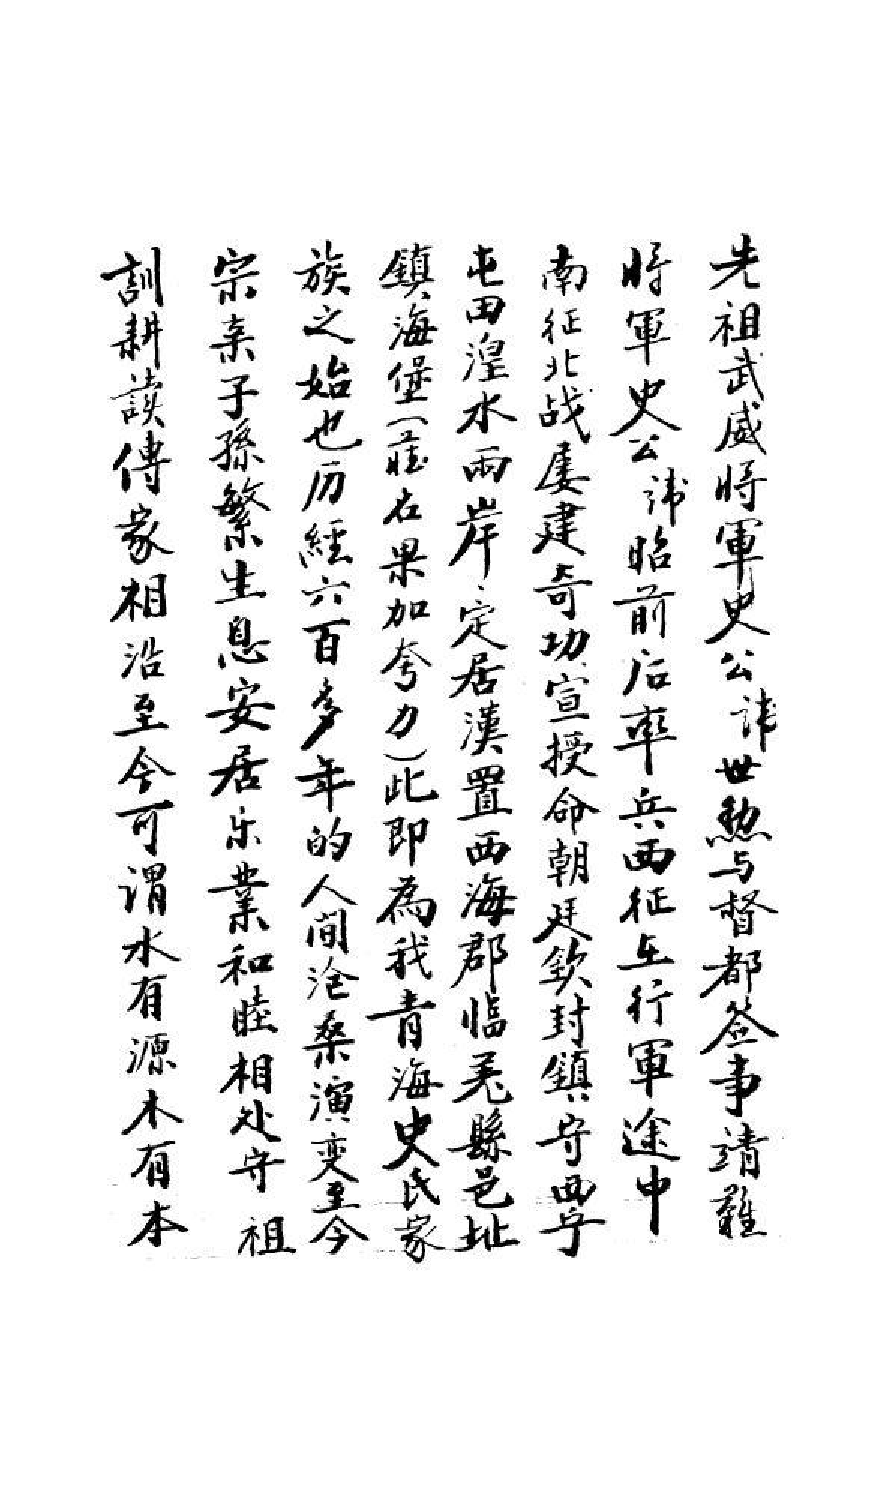 先祖武威將軍史公諱世勲与督都签事靖難
將軍史公諱昭前后率兵西征在行軍途中
南征北战屡建奇功宣授命朝廷欽封鎮守西宁
屯田湟水兩岸定居漢置西海郡臨羌縣邑址
鎮海堡(莊名果加夸力)此即為我青海史氏家
族之始也历經六百多年的人间沧桑演变至今
宗亲子孫繁生息安居乐業和睦相处守祖
訓耕读傳家相沿至今可謂水有源木有本